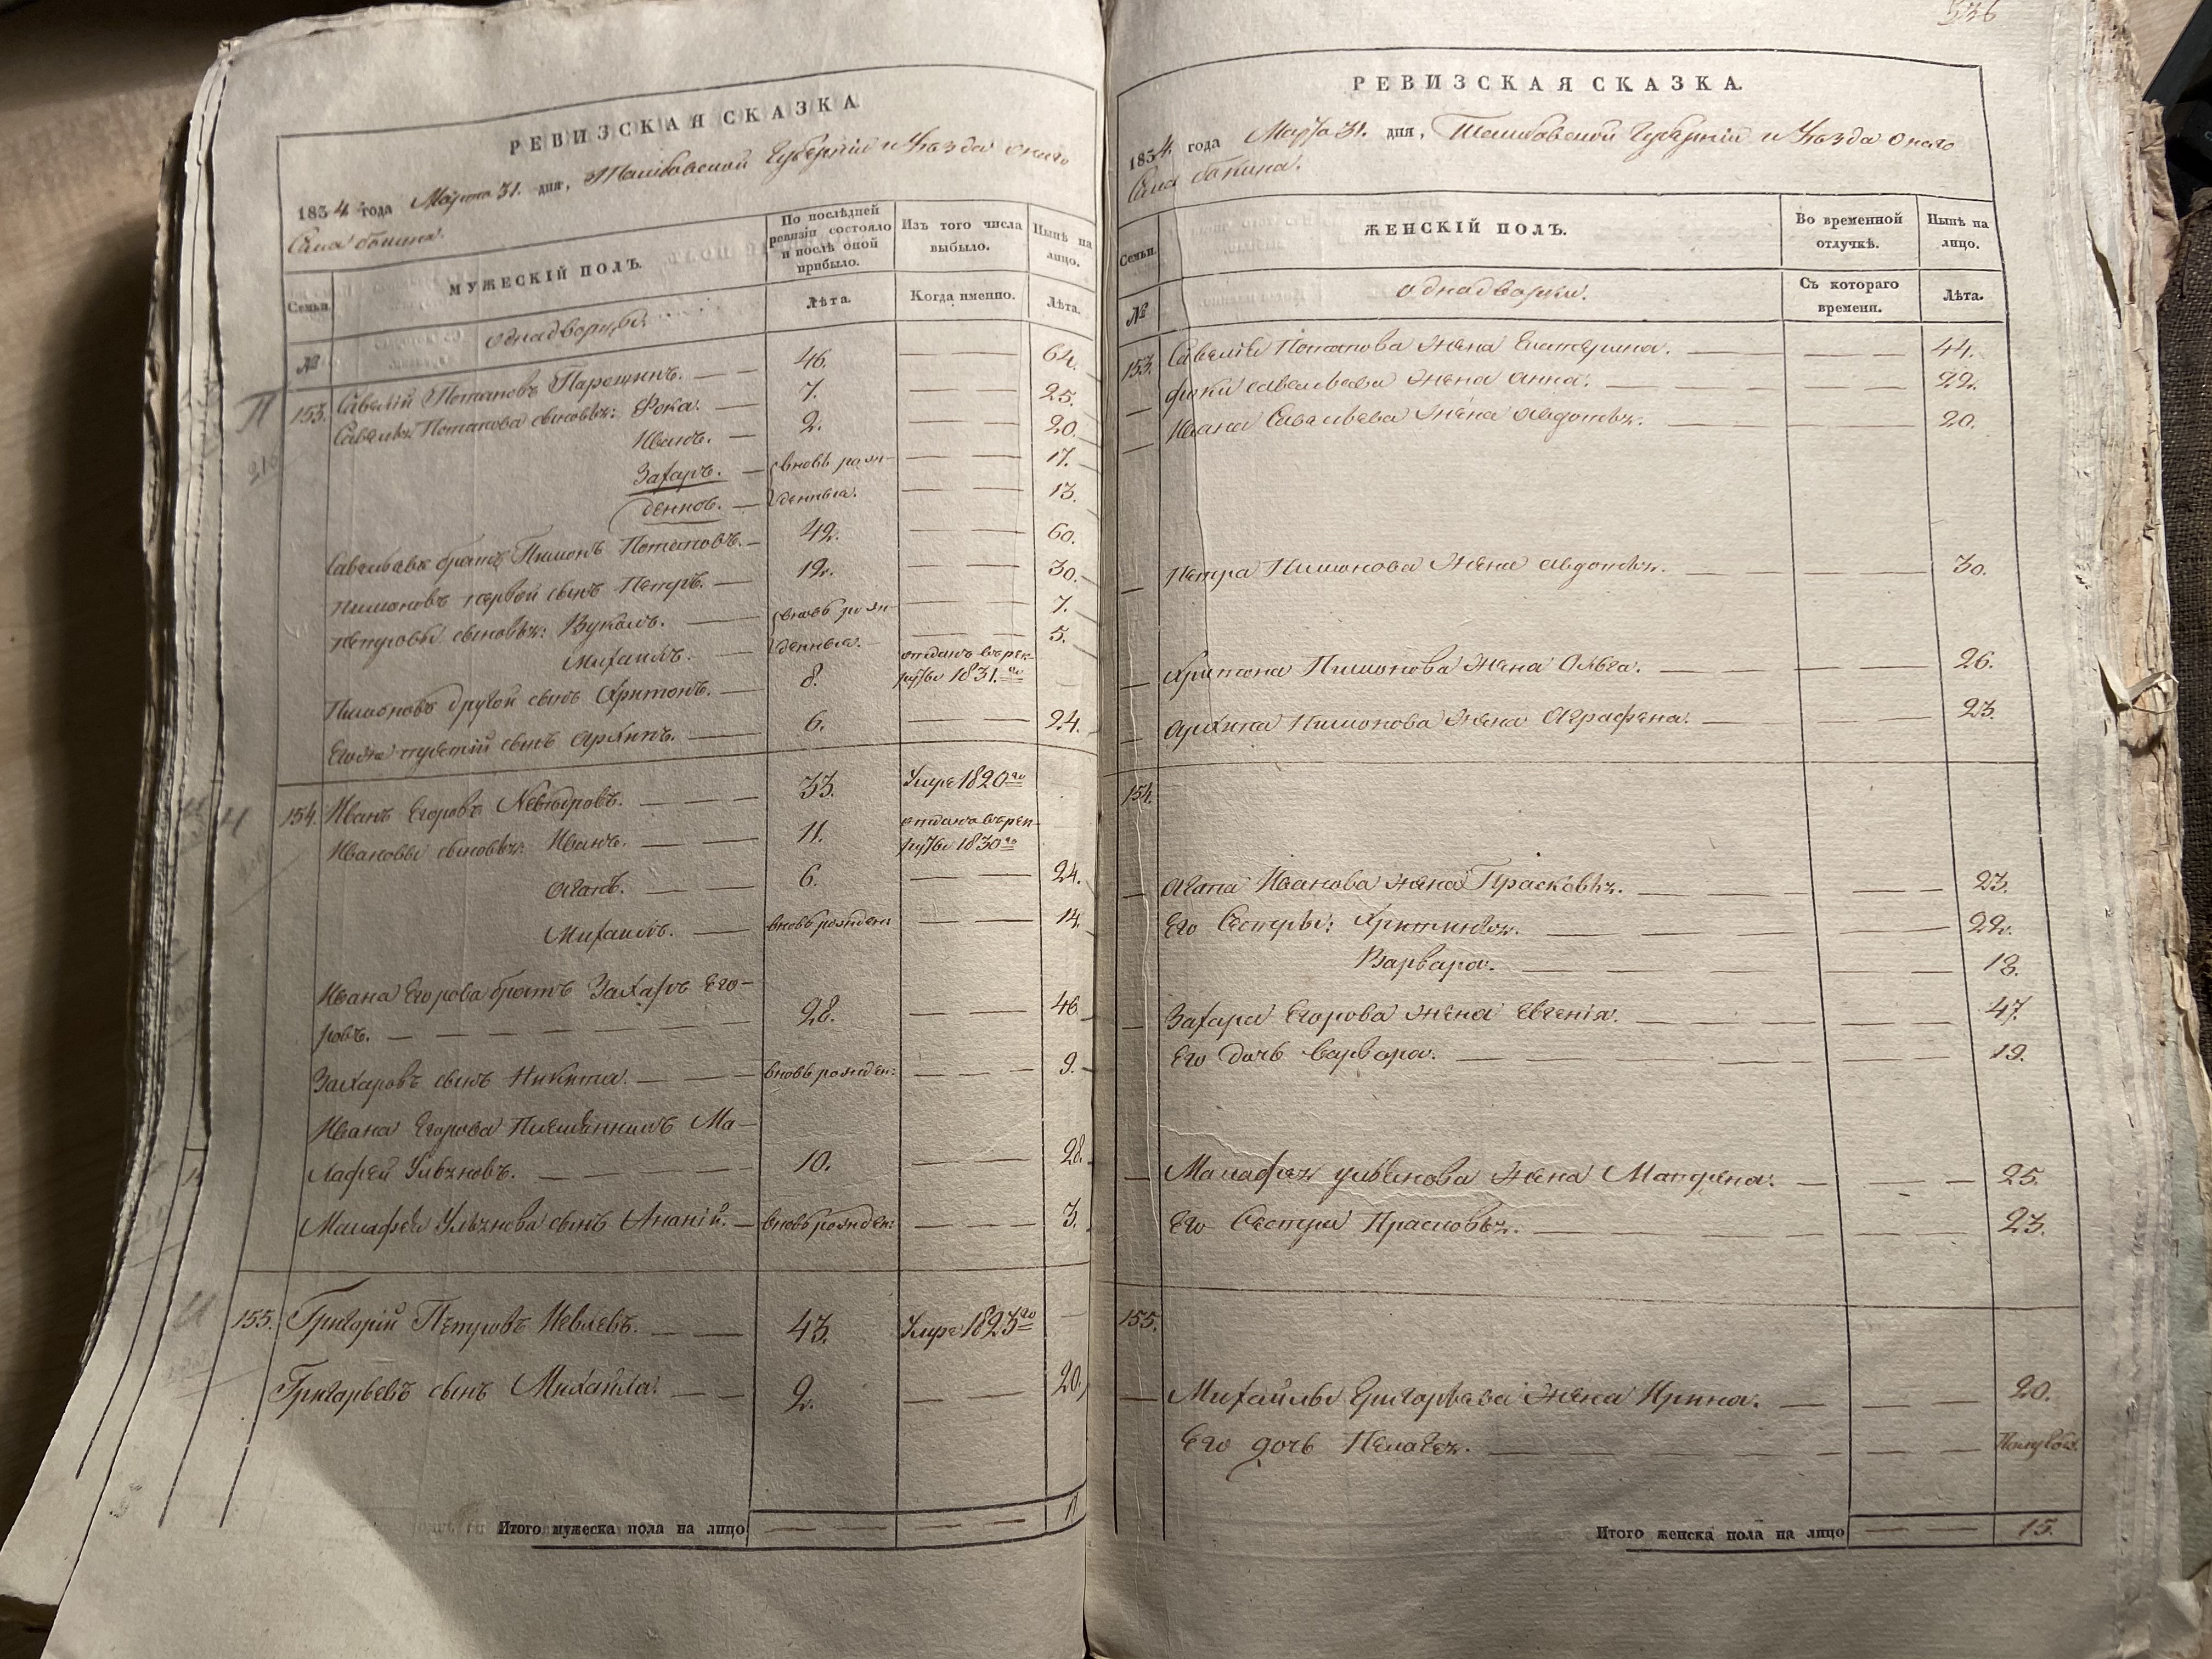 РЕВИЗСКАЯ СКАЗКА.
1834 года Марта 31. дня, Тамбовской Губернiи и Уезда онаго
Села
Семьи.
МУЖЕСКIЙ ПОЛЪ.
По послѣдней ревизiи состояло и послѣ оной прибыло.
Изъ того числа выбыло.
Нынѣ на лицо.
№
однадворцы.
Лѣта.
Когда именно.
Лѣта.
153. Савелiй Потаповъ 46. — — 64.
Савелья Потапова сыновья: Фока. — 7. — — 25.
Иванъ. — 2. — — 20.
Захаръ. — вновь рож- — — 17.
— денныя. — — 13.
Савельевъ братъ Пимонъ Потаповъ. — 42. — — 60.
Пимоновъ первой сынъ Петръ. — 12. — — 30.
Петровы сыновья: Вуколъ. — вновь рож- — — 7.
Михаилъ. — денныя. — — — 5.
Пимоновъ другой сынъ Хритонъ. — 8. отданъ въ рек-
руты 1831.го
Егоже третiй сынъ Архипъ. — 6. — — 24.
154. Иванъ Егоровъ — — 33. Умре 1820го
Ивановы сыновья: Иванъ. — — 11. отданъ въ рек-
руты 1830го
Агапъ. — — 6. — — 24.
Михаилъ. — вновь рожден: — — 14.
Ивана Егорова братъ Захаръ Его-
ровъ. — — — — 28. — — 46.
Захаровъ сынъ Никита. — — — вновь рожден: — — — 9.
Ивана Егорова Племянникъ Ма-
лафей Ульяновъ. — — — 10. — — 28.
Малафея Ульянова сынъ Ананiй. — вновь рожден: — — — 3.
155. Григорiй Петровъ — — 43. Умре 1823го —
Григорьевъ сынъ Михайла. — — 2. — — 20.
Итого мужеска пола на лицо — — — — —
РЕВИЗСКАЯ СКАЗКА.
1834. года Марта 31. дня, Тамбовской Губернiи и Уезда онаго
Села
Семьи.
ЖЕНСКIЙ ПОЛЪ.
Во временной отлучкѣ.
Нынѣ на лицо.
№
однадворки.
Съ котораго времени.
Лѣта.
153. Савелiя Потапова жена Екатерина. — — — 44.
— Фоки Савельева жена Анна. — — — 22.
— Ивана Савельева жена Авдотья. — — — 20.
— Петра Пимонова жена Авдотья. — — — 30.
— Хритона Пимонова жена Ольга. — — — 26.
— Архипа Пимонова жена Аграфена. — — — 23.
154.
— Агапа Иванова жена Прасковья. — — — 23.
Его Сестры: — — — 22.
Варвара. — — — 18.
— Захара Егорова жена Евгенiя. — — — 47.
Его дочь Варвара. — — — 19.
— Малафея Ульянова жена Матрена. — — — 25.
Его Сестра Прасковья. — — — 23.
155.
— Михайлы Григорьева жена Ирина. — — — 20.
Его дочь Пелагея. — — —
Итого женска пола на лицо — — 15.